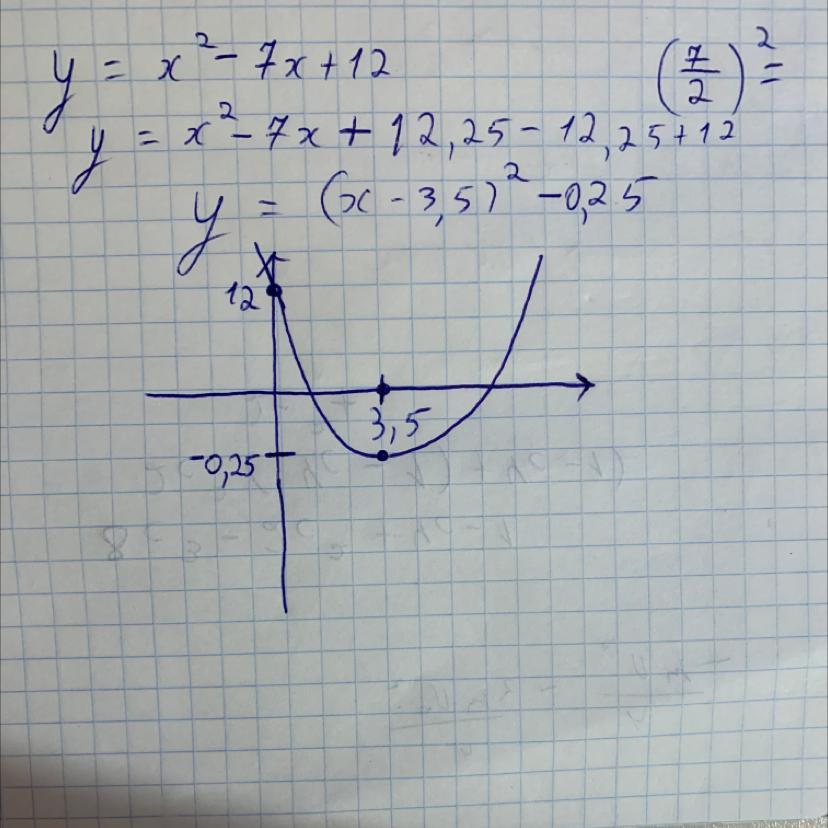 y = x² - 7x + 12
(7/2)² =
y = x² - 7x + 12,25 - 12,25 + 12
y = (x - 3,5)² - 0,25
12
3,5
-0,25